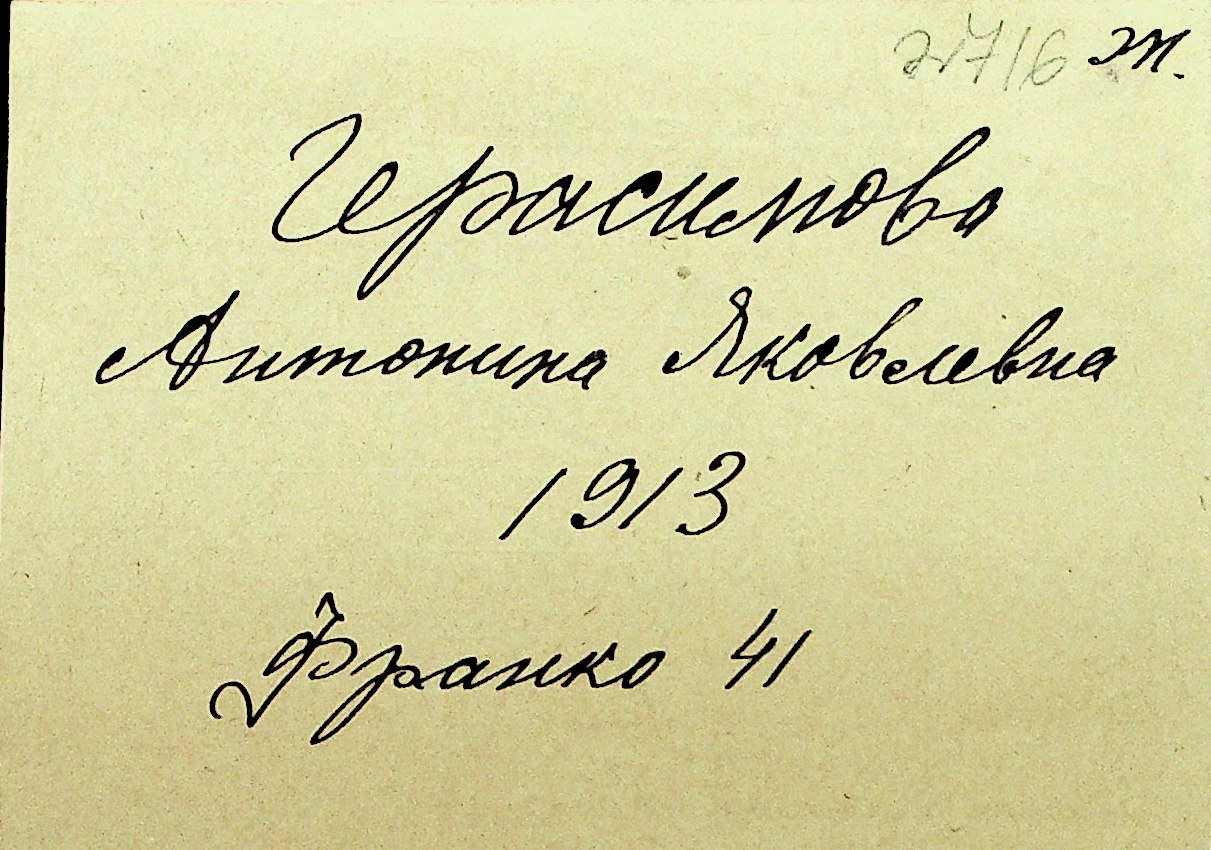 2716 ж.
Герасимова
Антонина Яковлевна
1913
Франко 41